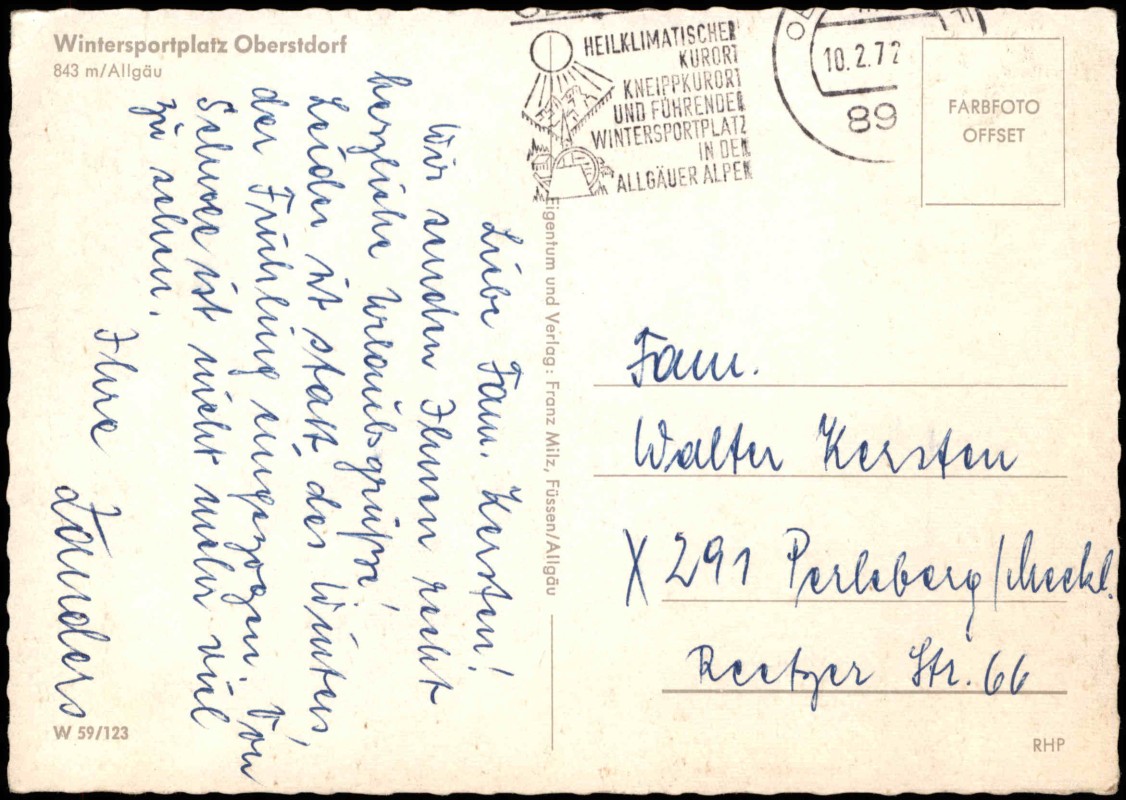 Wintersportplatz Oberstdorf
843 m/Allgäu
Liebe Fam. Kersten!
Wir senden Ihnen recht
herzliche Urlaubsgrüße!
Leider ist statt des Winters,
der Frühling eingezogen. Von
Schnee ist nicht mehr viel
zu sehen.
Ihre
Landers
W 59/123
Eigentum und Verlag: Franz Milz, Füssen/Allgäu
HEILKLIMATISCHER
KURORT
KNEIPPKURORT
UND FÜHRENDER
WINTERSPORTPLATZ
IN DEN
ALLGÄUER ALPEN
10.2.72
89
FARBFOTO
OFFSET
Fam.
Walter Kersten
X 291 Perleberg/Meckl.
Reetzer Str. 66
RHP